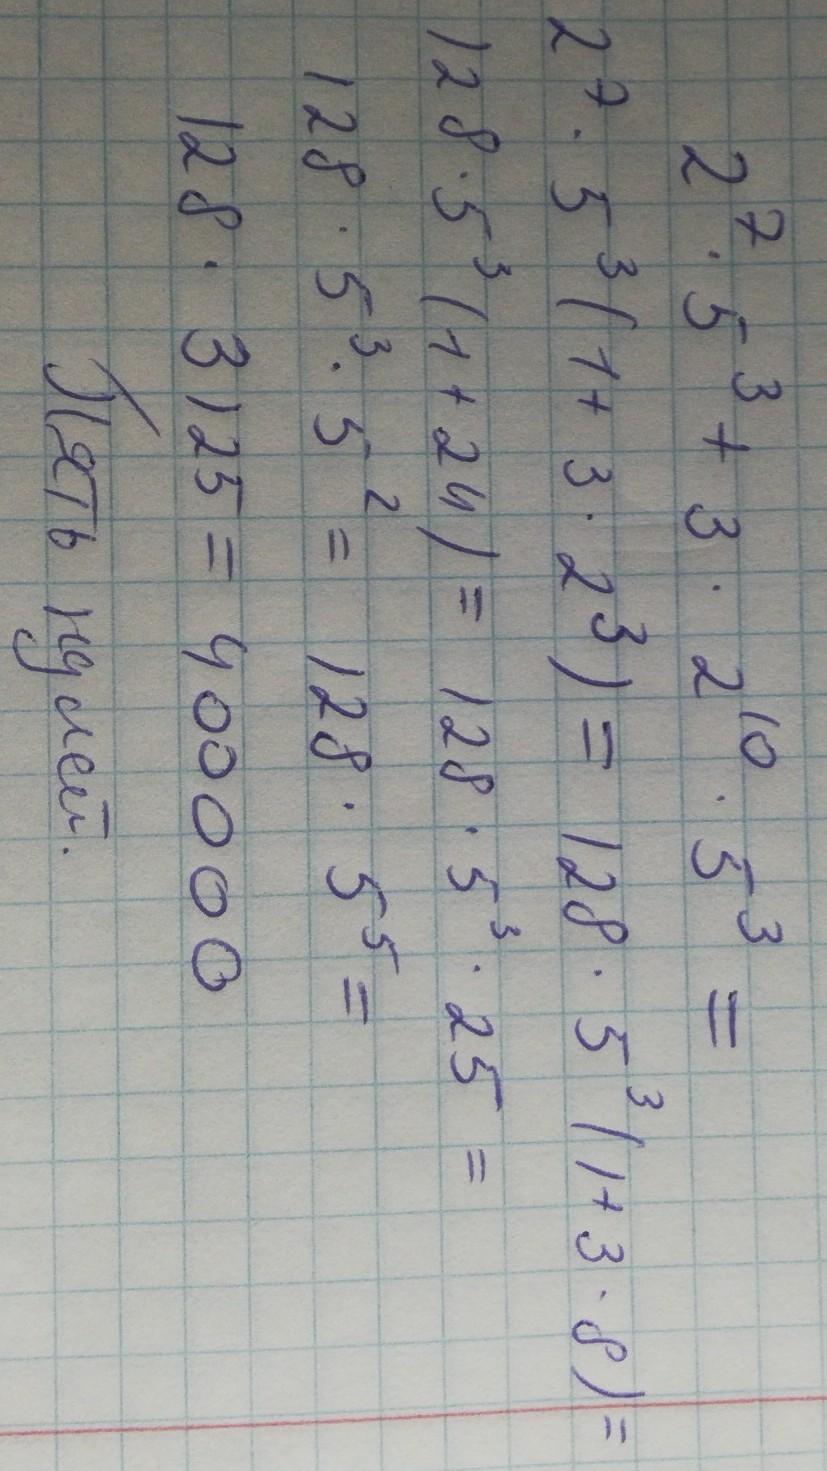 2⁷ · 5³ + 3 · 2¹⁰ · 5³ =
2⁷ · 5³ (1 + 3 · 2³) = 128 · 5³ (1 + 3 · 8) =
128 · 5³ (1 + 24) = 128 · 5³ · 25 =
128 · 5³ · 5² = 128 · 5⁵ =
128 · 3125 = 400000
Пять нулей.